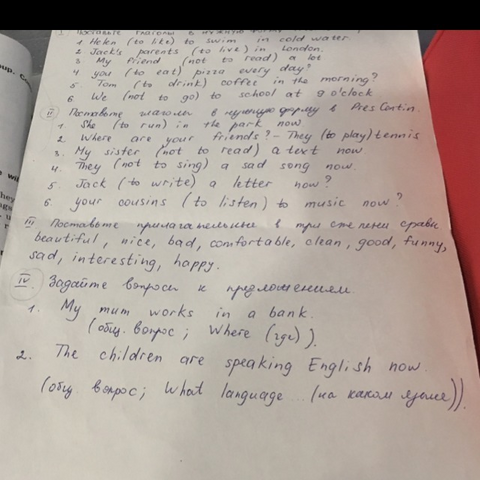 I. Поставьте глаголы в нужную форму
1. Helen (to like) to swim in cold water
2. Jack's parents (to live) in London.
3. My friend (not to read) a lot
4. you (to eat) pizza every day?
5. Tom (to drink) coffee in the morning?
6. We (not to go) to school at 9 o'clock
II Поставьте глаголы в нужную форму в Pres Contin.
1. She (to run) in the park now.
2. Where are your friends? - They (to play) tennis
3. My sister (not to read) a text now
4. They (not to sing) a sad song now.
5. Jack (to write) a letter now?
6. your cousins (to listen) to music now?
III Поставьте прилагательные в три степени сравн
beautiful, nice, bad, comfortable, clean, good, funny,
sad, interesting, happy.
IV. Задайте вопросы к предложениям.
1. My mum works in a bank.
(общ. вопрос; Where (где)).
2. The children are speaking English now.
(общ. вопрос; What language ... (на каком языке)).